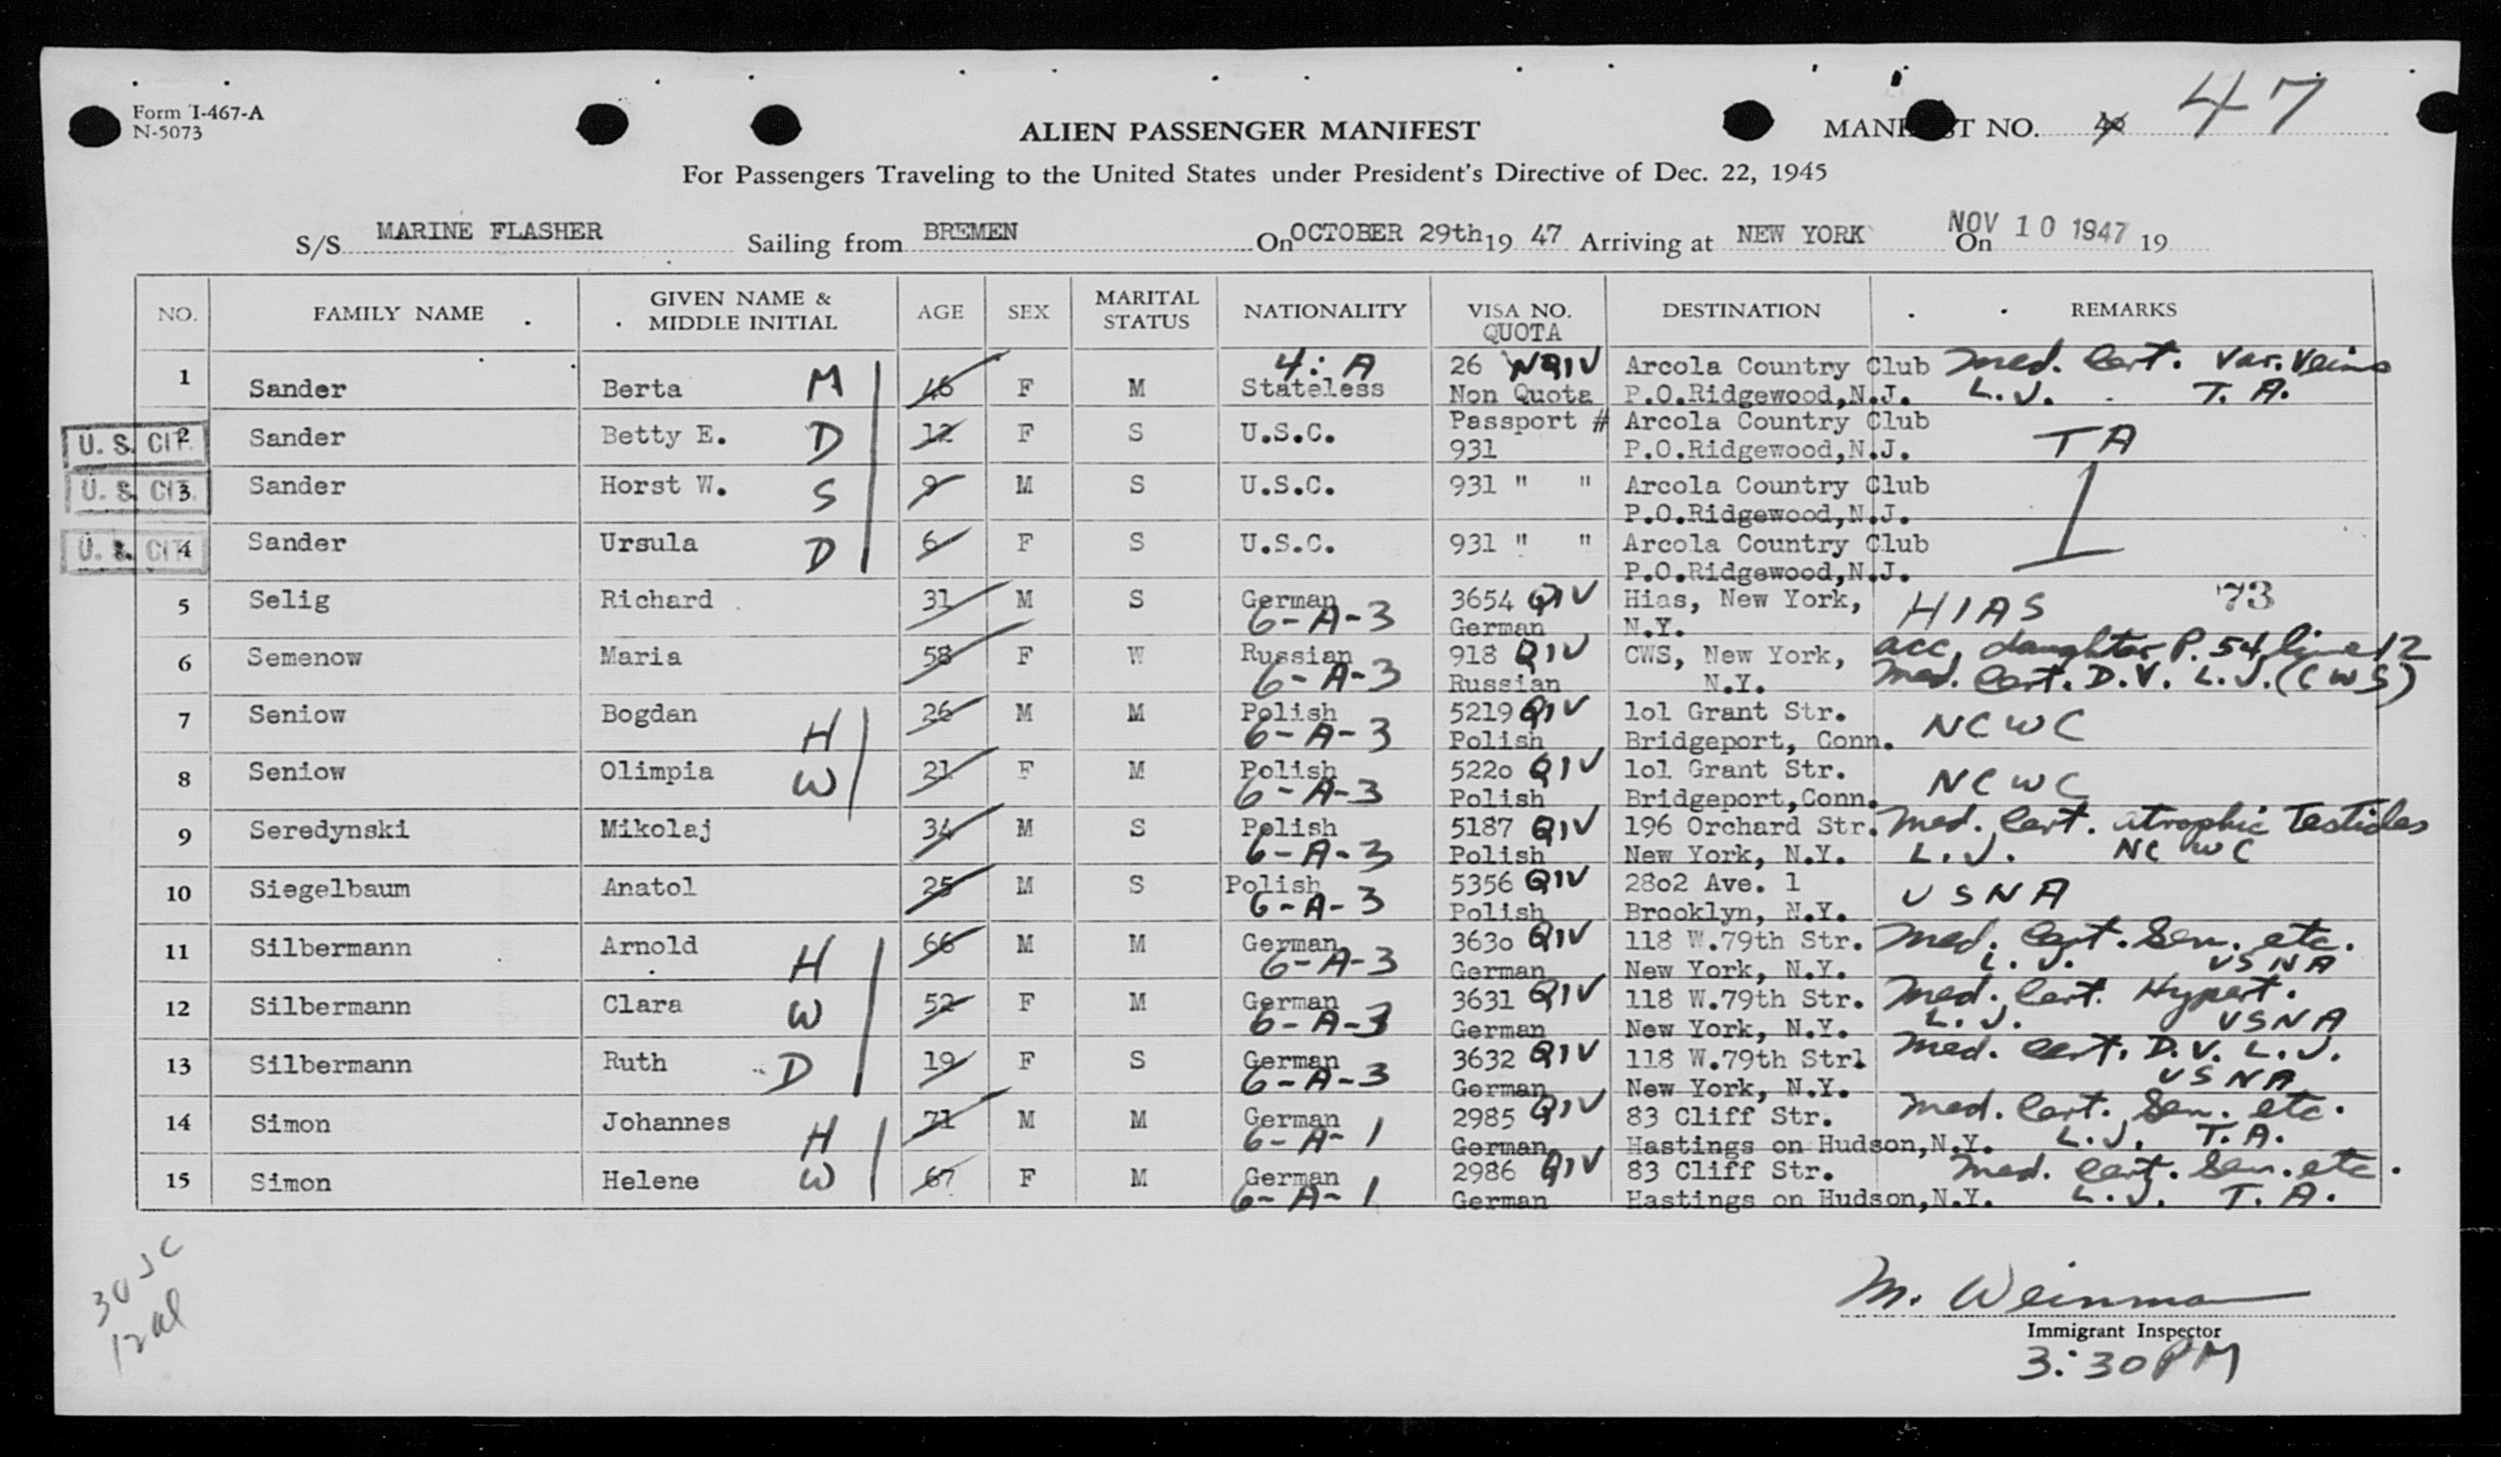 Form I-467-A
N-5073
ALIEN PASSENGER MANIFEST
MANIFEST NO. 40 47
For Passengers Traveling to the United States under President's Directive of Dec. 22, 1945
S/S MARINE FLASHER Sailing from BREMEN On OCTOBER 29th 19 47 Arriving at NEW YORK On NOV 10 1947 19
NO. FAMILY NAME GIVEN NAME & MIDDLE INITIAL AGE SEX MARITAL STATUS NATIONALITY VISA NO. QUOTA DESTINATION REMARKS
4: A 26 NQIV Arcola Country Club Med. Cert. Var. Veins
1 Sander Berta M 46 F M Stateless Non Quota P.O.Ridgewood,N.J. L.J. T.A.
Passport # Arcola Country Club
U.S. CIT. 2 Sander Betty E. D 12 F S U.S.C. 931 P.O.Ridgewood,N.J. TA
U.S. CIT. 3 Sander Horst W. S 9 M S U.S.C. 931 " " Arcola Country Club
P.O.Ridgewood,N.J.
U.S. CIT. 4 Sander Ursula D 6 F S U.S.C. 931 " " Arcola Country Club
P.O.Ridgewood,N.J.
5 Selig Richard 31 M S German 3654 QIV Hias, New York, HIAS 73
6-A-3 German N.Y.
6 Semenow Maria 58 F W Russian 918 QIV CWS, New York, acc. daughter P. 54 line 12
6-A-3 Russian N.Y. Med. Cert. D.V. L.J. (CWS)
7 Seniow Bogdan H 26 M M Polish 5219 QIV lol Grant Str. NCWC
6-A-3 Polish Bridgeport, Conn.
8 Seniow Olimpia W 21 F M Polish 522o QIV lol Grant Str. NCWC
6-A-3 Polish Bridgeport,Conn.
9 Seredynski Mikolaj 34 M S Polish 5187 QIV 196 Orchard Str. Med. Cert. atrophic Testicles
6-A-3 Polish New York, N.Y. L.J. NCWC
10 Siegelbaum Anatol 25 M S Polish 5356 QIV 28o2 Ave. l USNA
6-A-3 Polish Brooklyn, N.Y.
11 Silbermann Arnold H 66 M M German 363o QIV 118 W.79th Str. Med. Cert. Sen. etc.
6-A-3 German New York, N.Y. L.J. USNA
12 Silbermann Clara W 52 F M German 3631 QIV 118 W.79th Str. Med. Cert. Hypert.
6-A-3 German New York, N.Y. L.J. USNA
13 Silbermann Ruth D 19 F S German 3632 QIV 118 W.79th Strl Med. Cert. D.V. L.J.
6-A-3 German New York, N.Y. USNA
14 Simon Johannes H 71 M M German 2985 QIV 83 Cliff Str. Med. Cert. Sen. etc.
6-A-1 German Hastings on Hudson,N.Y. L.J. T.A.
15 Simon Helene W 67 F M German 2986 QIV 83 Cliff Str. Med. Cert. Sen. etc.
6-A-1 German Hastings on Hudson,N.Y. L.J. T.A.
M. Weinman
Immigrant Inspector
3:30 PM